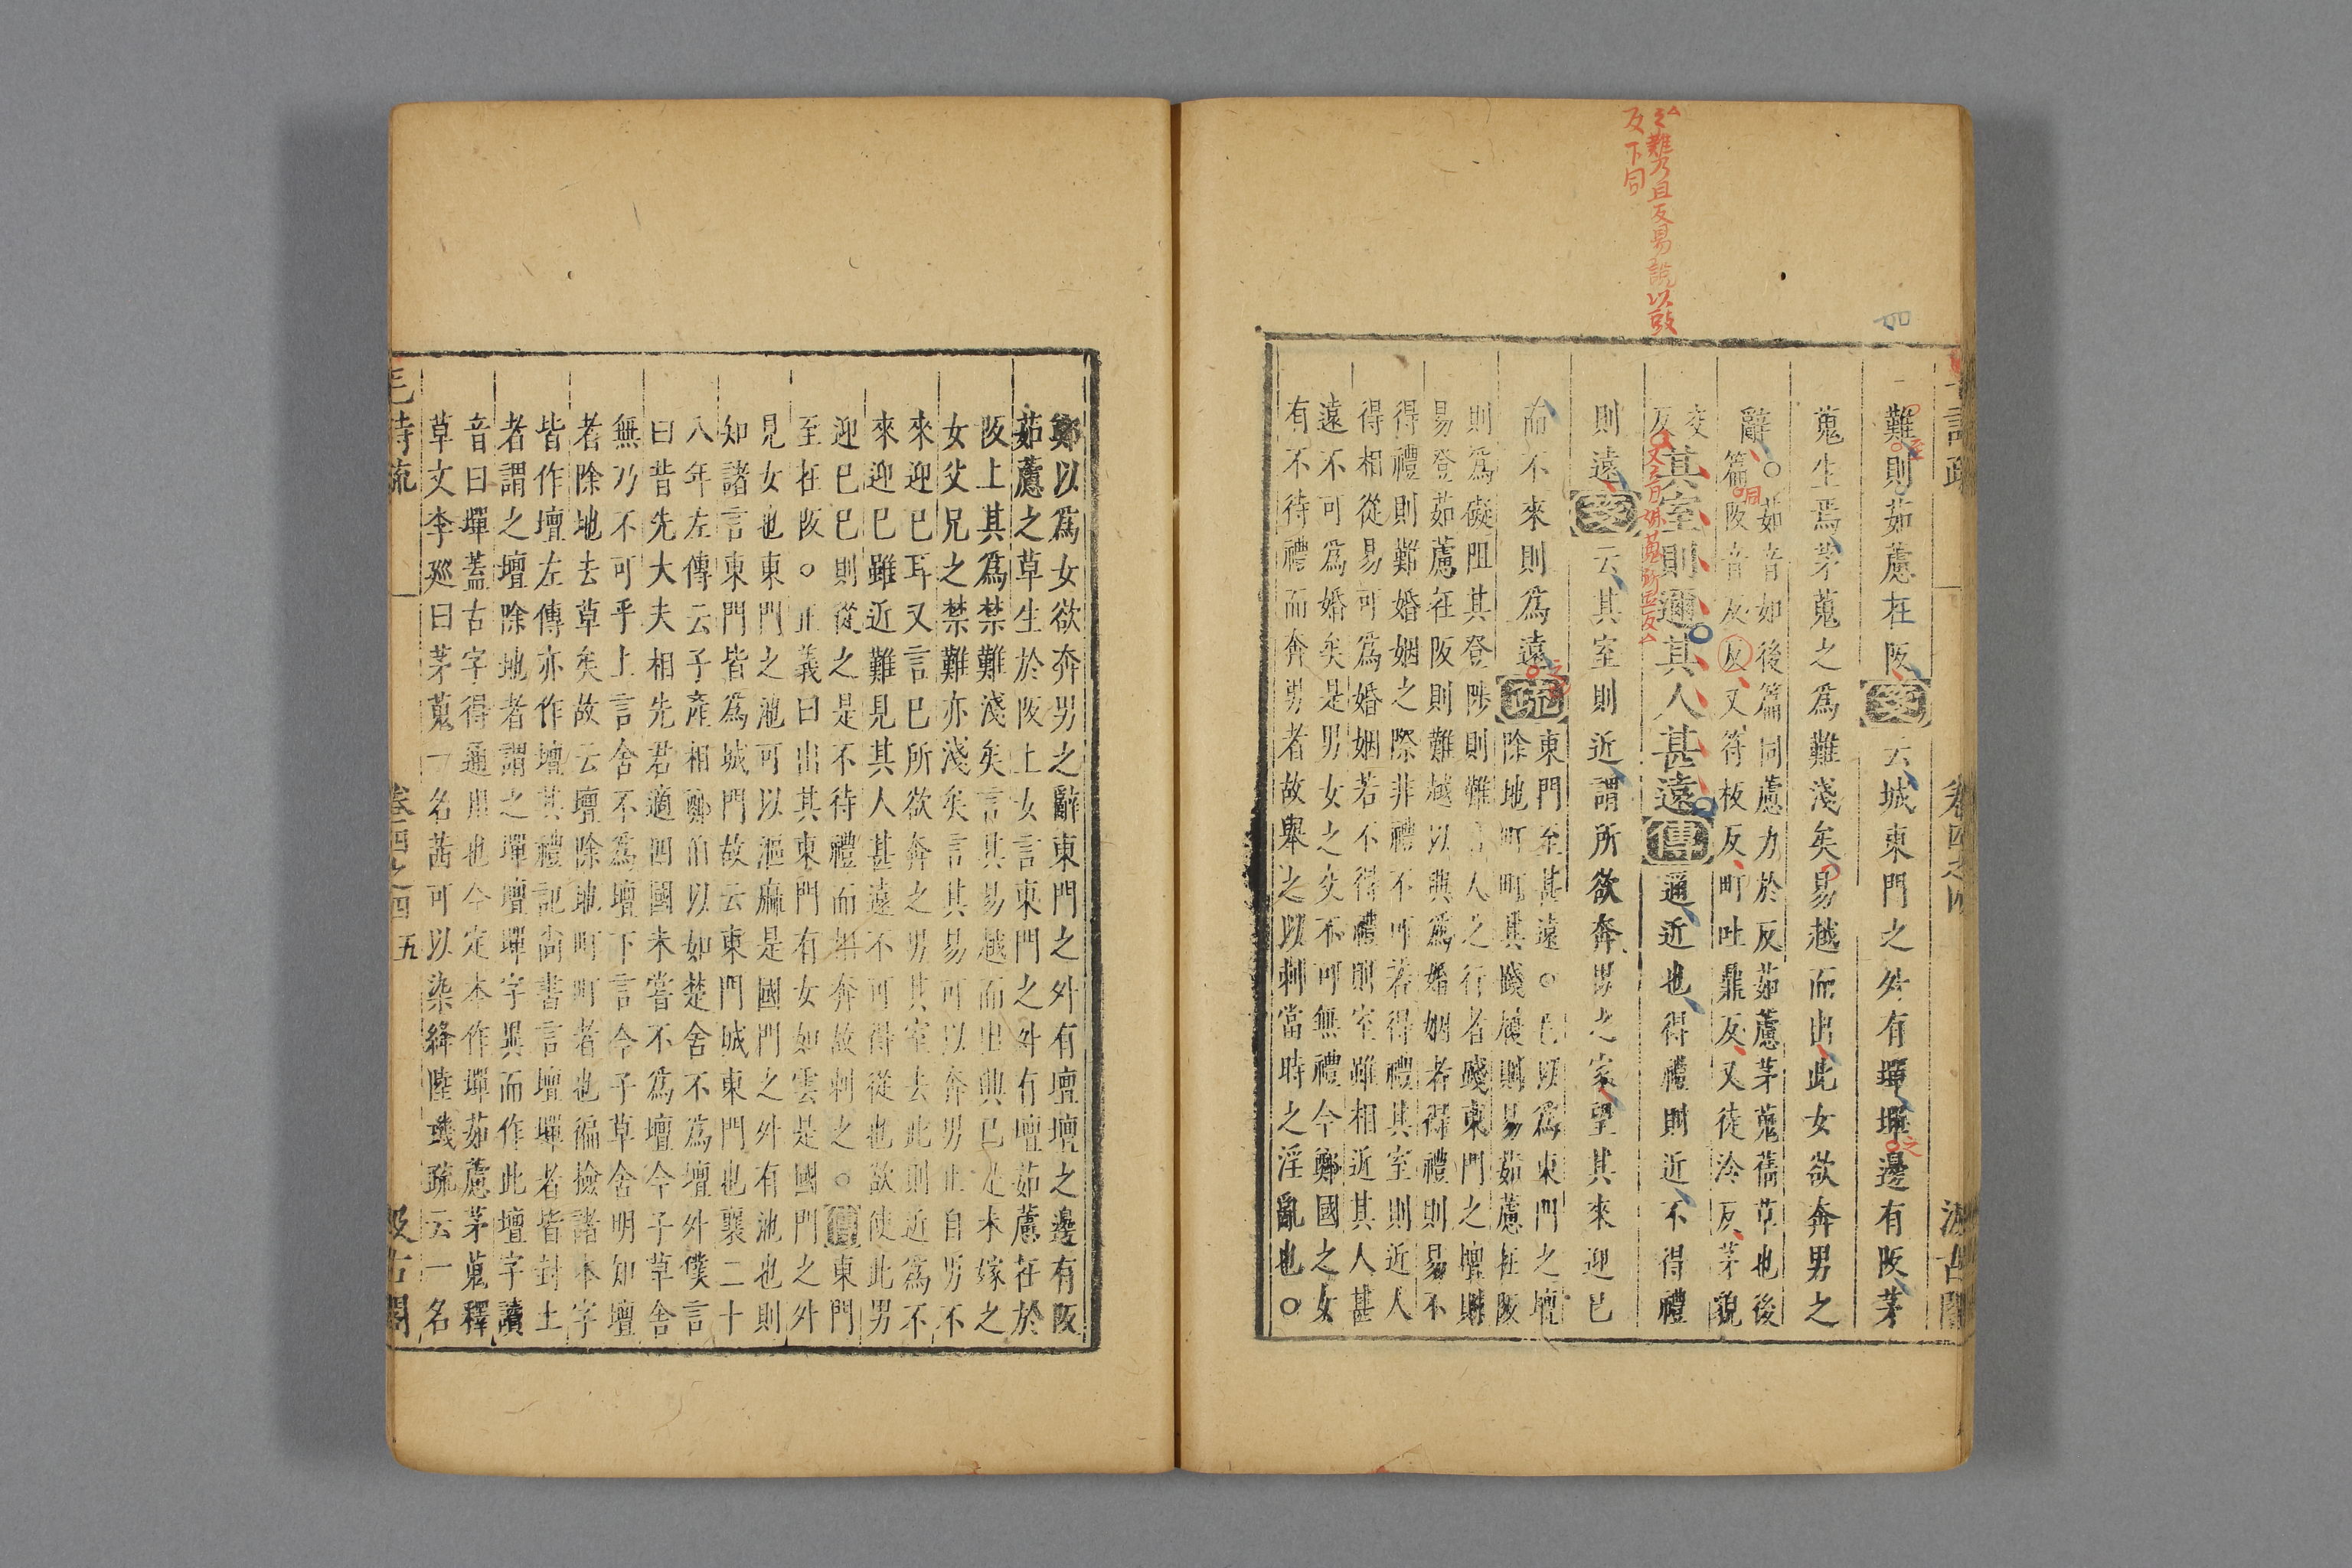 難則茹藘在阪箋云城東門之外有墠墠邊有阪茅
蒐生焉茅蒐之爲難淺矣易越而出此女欲奔男之
辭○茹音如後篇同藘力於反茹藘茅蒐蒨草也後
篇阪音反又符板反町吐鼎反又徒泠反茅貌
交
反其室則邇其人甚遠傳邇近也得禮則近不得禮
則遠箋云其室則近謂所欲奔男之家望其來迎已
而不來則爲遠疏東門至甚遠○毛以爲東門之壇
除地町町其踐履則易茹藘在阪
則爲礙阻其登陟則難言人之行者踐東門之壇則
易登茹藘在阪則難越以興爲婚姻者得禮則易不
得禮則難婚姻之際非禮不可若得禮其室則近人
得相從易可爲婚姻若不得禮則室雖相近其人甚
遠不可爲婚矣是男女之交不可無禮今鄭國之女
有不待禮而奔男者故舉之以刺當時之淫亂也○
鄭以爲女欲奔男之辭東門之外有壇壇之邊有阪
茹藘之草生於阪上女言東門之外有壇茹藘在於
阪上其爲禁難淺矣言其易越而出興已是未嫁之
女父兄之禁難亦淺矣言其易可以奔男止自男不
來迎已耳又言已所欲奔之男其室去此則近爲不
來迎已雖近難見其人甚遠不可得從也欲使此男
迎已已則從之是不待禮而相奔故刺之○傳東門
至在阪○正義曰出其東門有女如雲是國門之外
見女也東門之池可以漚麻是國門之外有池也則
知諸言東門皆爲城門故云東門城東門也襄二十
八年左傳云子產相鄭伯以如楚舍不爲壇外僕言
曰昔先大夫相先君適四國未嘗不爲壇今子草舍
無乃不可乎上言舍不爲壇下言今子草舍明知壇
者除地去草矣故云壇除地町町者也徧撿諸本字
皆作壇左傳亦作壇其禮記尚書言壇墠者皆封土
者謂之壇除地者謂之墠壇墠字異而作此壇字讀
音曰墠蓋古字得通用也今定本作墠茹藘茅蒐釋
草文李巡曰茅蒐一名茜可以染絳陸璣疏云一名
卷四之四 五
汲古閣
卷四之四
汲古閣
反下同
難乃旦反易說以豉